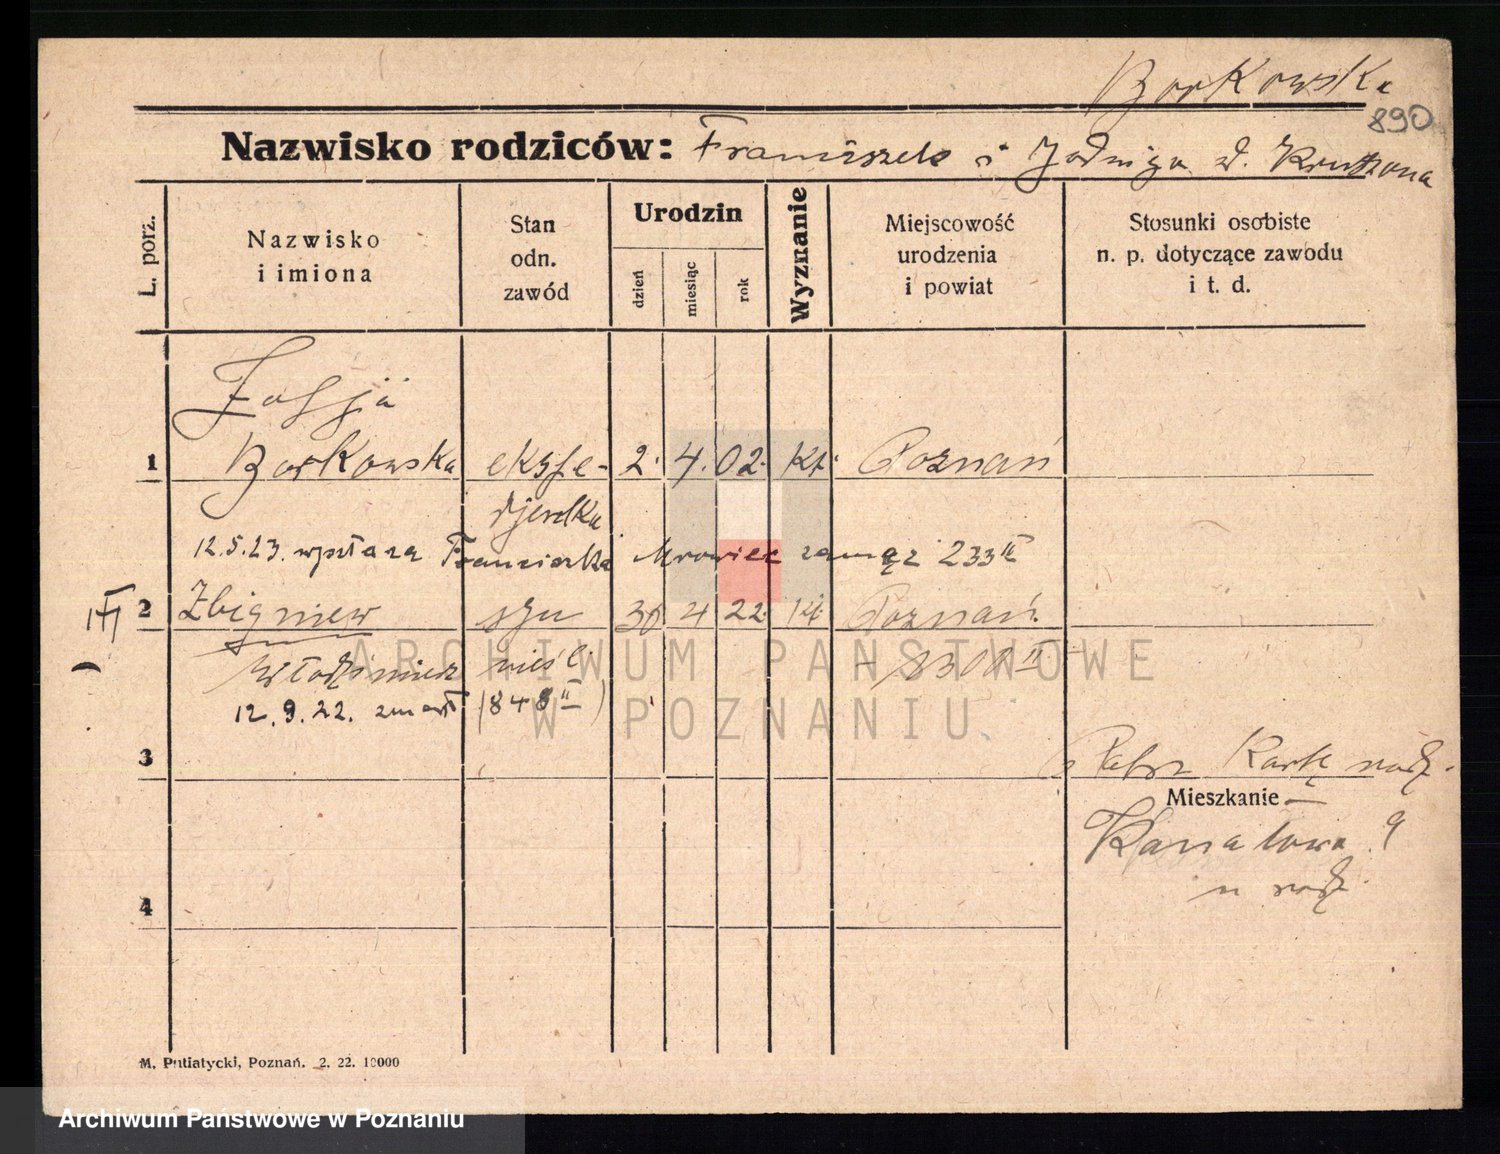 Borkowska
890
Nazwisko rodziców: Franciszek i Jadwiga z d.
L. porz.
Nazwisko i imiona
Stan odn. zawód
Urodzin
dzień
miesiąc
rok
Wyznanie
Miejscowość urodzenia i powiat
Stosunki osobiste n. p. dotyczące zawodu i t. d.
Zofja
1 Borkowska ekspe- 2. 4. 02. kt. Poznań
djentka
12.5.23. wyszła za Franciszka Mrowiec zamąż 233 II
III 2 Zbigniew szu 30 4 22. kt. Poznań.
Włodzimierz nieśl.
12.9.22. zmarł (848 II)
3 Patrz Kartę rodz.
Mieszkanie
Kanałowa 9
u rodz.
4
M. Putiatycki, Poznań. 2. 22. 10000
ARCHIWUM PAŃSTWOWE
W POZNANIU
Archiwum Państwowe w Poznaniu